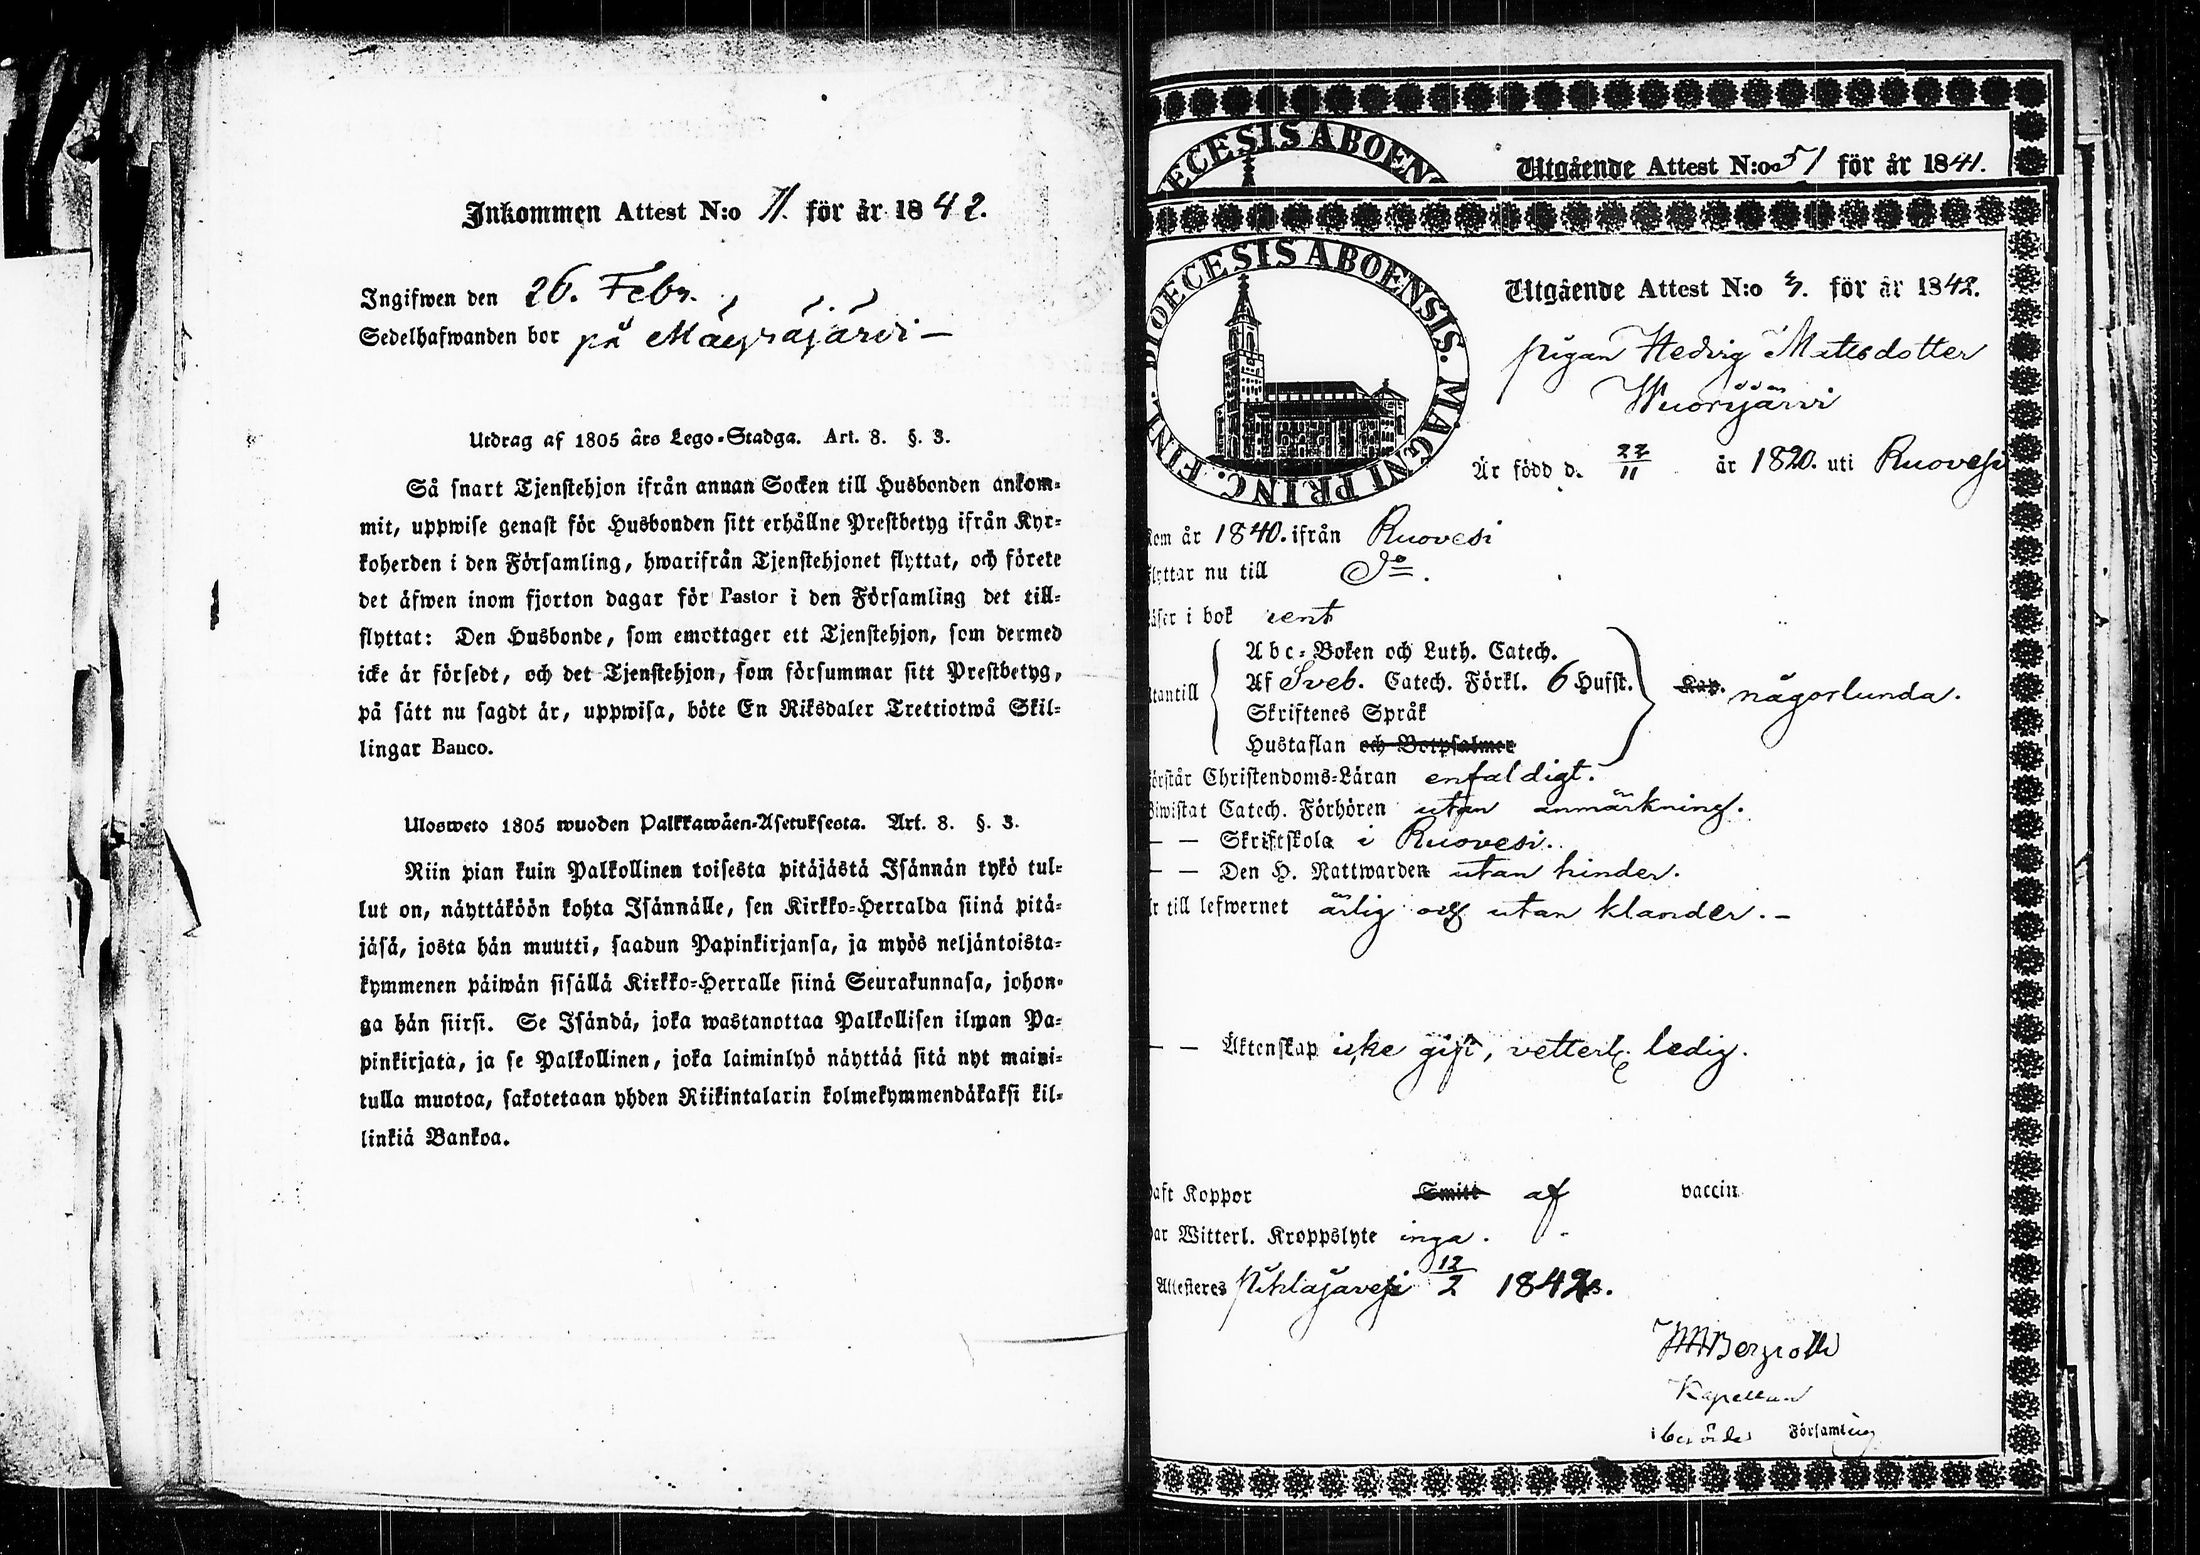 Inkommen Attest N:o 11. för år 1842.
Ingifwen den 26. Febr.
Sedelhafwanden bor på Mäyräjärvi –
Utdrag af 1805 års Lego-Stadga. Art. 8. §. 3.
Så snart Tjenstehjon ifrån annan Socken till Husbonden ankom-
mit, uppwise genast för Husbonden sitt erhållne Prestbetyg ifrån Kyr-
koherden i den Församling, hwarifrån Tjenstehjonet flyttat, och förete
det äfwen inom fjorton dagar för Pastor i den Församling det till-
flyttat: Den Husbonde, som emottager ett Tjenstehjon, som dermed
icke är försedt, och det Tjenstehjon, som försummar sitt Prestbetyg,
på sätt nu sagdt är, uppwisa, böte En Riksdaler Trettiotwå Skil-
lingar Banco.
Ulosweto 1805 wuoden Palkkawäen-Asetuksesta. Art. 8. §. 3.
Niin pian kuin Palkollinen toisesta pitäjästä Isännän tykö tul-
lut on, näyttäköön kohta Isännälle, sen Kirkko-Herralda siinä pitä-
jäsä, josta hän muutti, saadun Papinkirjansa, ja myös neljäntoista-
kymmenen päiwän sisällä Kirkko-Herralle siinä Seurakunnasa, johon-
ga hän siirsi. Se Isändä, joka wastanottaa Palkollisen ilman Pa-
pinkirjata, ja se Palkollinen, joka laiminlyö näyttää sitä nyt maini-
tulla muotoa, sakotetaan yhden Riikintalarin kolmekymmendäkaksi kil-
linkiä Bankoa.
OECESIS ABOEN
Utgående Attest N:o 51 för år 1841.
DIOECESIS ABOENSIS. MAGNI PRINC. FINL.
Utgående Attest N:o 3. för år 1842.
pigan Hedvig Matsdotter
Wuorijärvi
Är född d. 22/11 år 1820. uti Ruovesi
kom år 1840. ifrån Ruovesi
flyttar nu till Do.
läser i bok rent
utantill
Abc-Boken och Luth. Catech.
Af Sveb. Catech. Förkl. 6 Hufst.
Skriftenes Språk
Hustaflan och Botpsalmer
Kap. någorlunda.
förstår Christendoms-Läran enfaldigt.
Biwistat Catech. Förhören utan anmärkning.
– – Skriftskola i Ruovesi.
– – Den H. Nattwarden utan hinder.
Är till lefwernet ärlig och utan klander. –
– – Äktenskap icke gift, vetterl. ledig.
haft Koppor Smitt af vaccin
har Witterl. Kroppslyte inga.
Attesteres Pihlajavesi 12/2 1842.
Bergroth
Kapellan
i berörde Församling